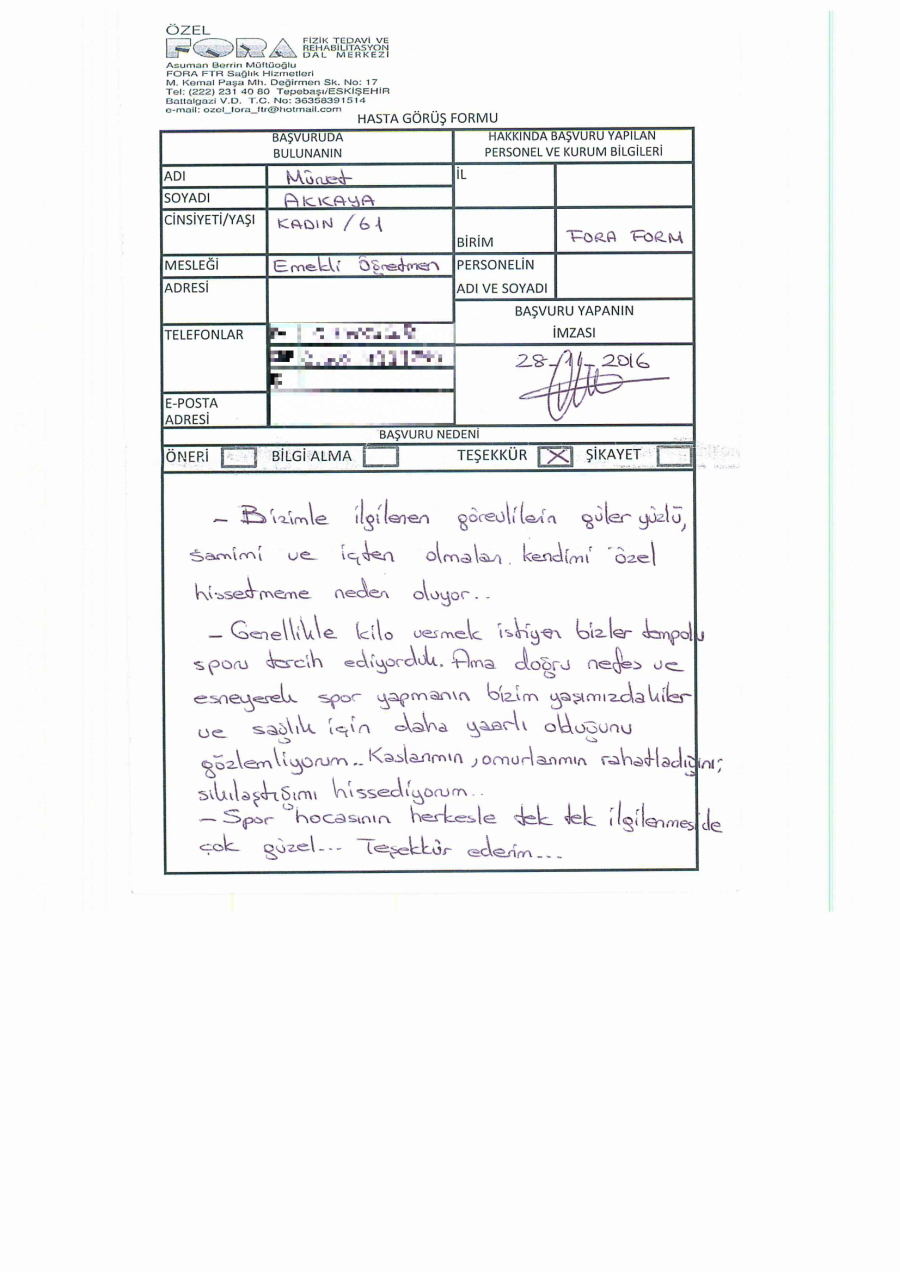 ÖZEL
FORA FİZİK TEDAVİ VE
REHABİLİTASYON
DAL MERKEZİ
Asuman Berrin Müftüoğlu
FORA FTR Sağlık Hizmetleri
M. Kemal Paşa Mh. Değirmen Sk. No: 17
Tel: (222) 231 40 80 Tepebaşı/ESKİŞEHİR
Battalgazi V.D. T.C. No: 36358391514
e-mail: ozel_fora_ftr@hotmail.com
HASTA GÖRÜŞ FORMU
BAŞVURUDA
BULUNANIN
HAKKINDA BAŞVURU YAPILAN
PERSONEL VE KURUM BİLGİLERİ
ADI
İL
SOYADI AKKAYA
CİNSİYETİ/YAŞI KADIN / 61
BİRİM FORA FORM
MESLEĞİ Emekli Öğretmen
PERSONELİN
ADI VE SOYADI
ADRESİ
BAŞVURU YAPANIN
İMZASI
TELEFONLAR
28-11-2016
E-POSTA
ADRESİ
BAŞVURU NEDENİ
ÖNERİ BİLGİ ALMA TEŞEKKÜR X ŞİKAYET
– Bizimle ilgilenen görevlilerin güler yüzlü,
samimi ve içten olmaları kendimi özel
hissetmeme neden oluyor..
– Genellikle kilo vermek istiyen bizler tempolu
sporu tercih ediyorduk. Ama doğru nefes ve
esneyerek spor yapmanın bizim yaşımızdakiler
ve sağlık için daha yaarlı olduğunu
gözlemliyorum.. Kaslarımın, omurlarımın rahatladığını;
sıkılaştığımı hissediyorum..
– Spor hocasının herkesle tek tek ilgilenmeside
çok güzel... Teşekkür ederim...